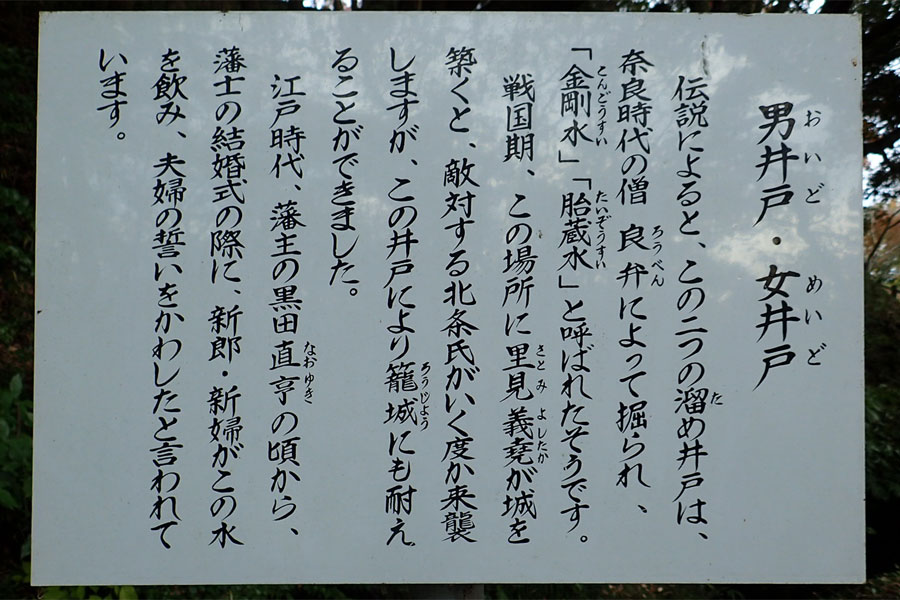 男井戸・女井戸
おいど めいど
伝説によると、この二つの溜め井戸は、
た
奈良時代の僧 良弁によって掘られ、
ろうべん
「金剛水」「胎蔵水」と呼ばれたそうです。
こんごうすい たいぞうすい
戦国期、この場所に里見義堯が城を
さとみ よしたか
築くと、敵対する北条氏がいく度か来襲
しますが、この井戸により籠城にも耐え
ろうじょう
ることができました。
江戸時代、藩主の黒田直亨の頃から、
なおゆき
藩士の結婚式の際に、新郎・新婦がこの水
を飲み、夫婦の誓いをかわしたと言われて
います。